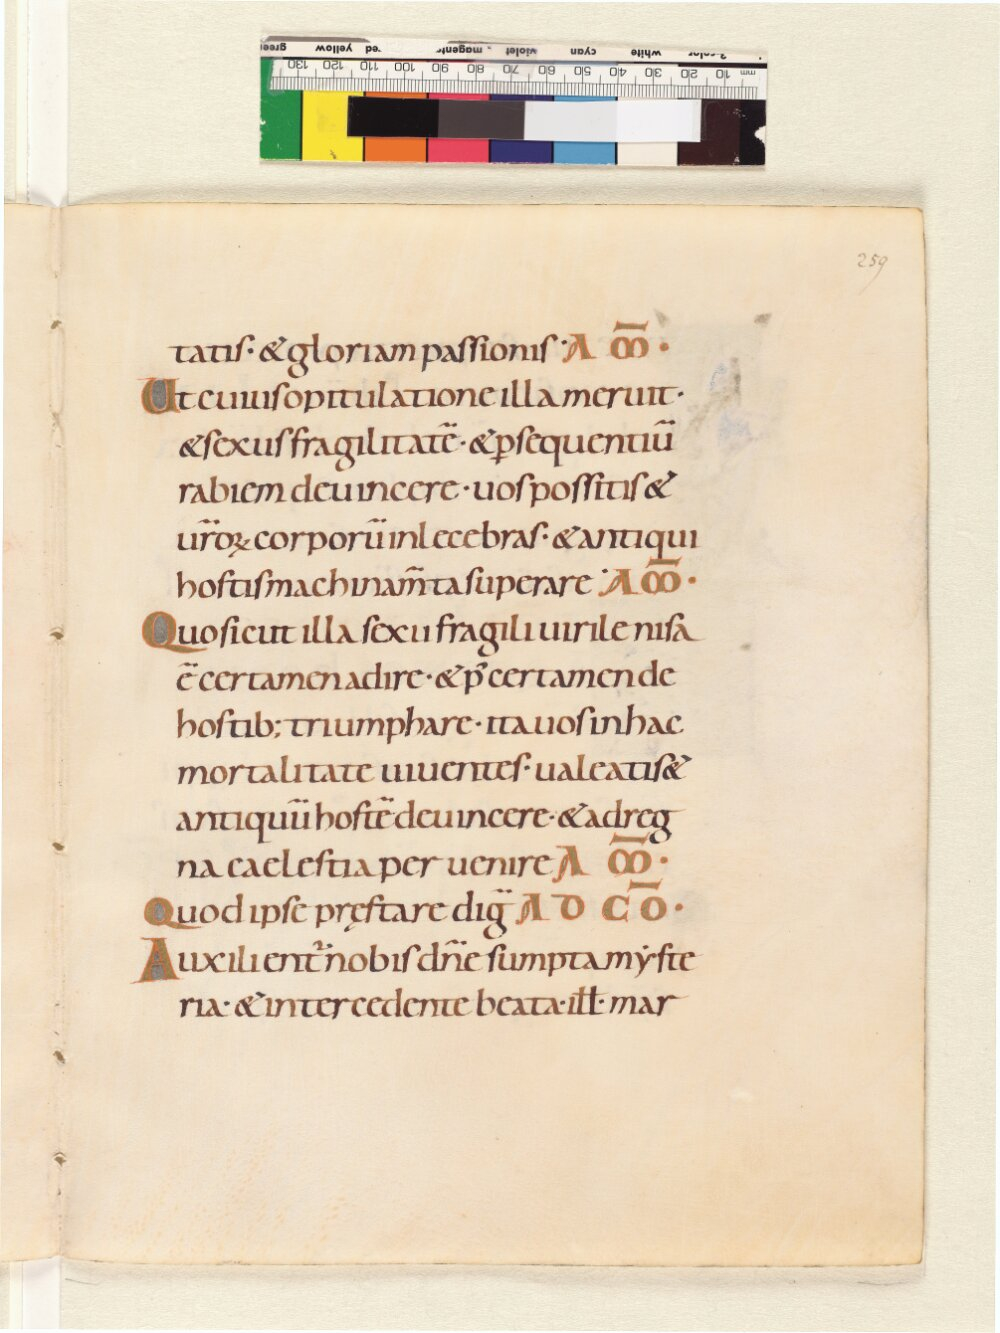 green yellow red magenta violet cyan white 3-color
130 120 110 100 90 80 70 60 50 40 30 20 10 mm
259
tatis· & gloriam passionis· A m̅·
Ut cuius opitulatione illa meruit·
& sexus fragilitatē· & p̱sequentiū
rabiem deuincere· uos possitis &
ur̅oꝝ corporū inlecebras· & antiqui
hostis machinam̅ta superare· A m̅·
Quo sicut illa sexu fragili uirile nisa
ē certamen adire· & p̄ certamen de
hostib; triumphare· ita uos in hac
mortalitate uiuentes· ualeatis &
antiquū hostē deuincere· & ad reg
na caelestia peruenire A m̅·
Quod ipse pręstare dig̅ A D C O̅·
Auxilient̅ nobis dn̅e sumpta myste
ria· & intercedente beata· ill̅· mar